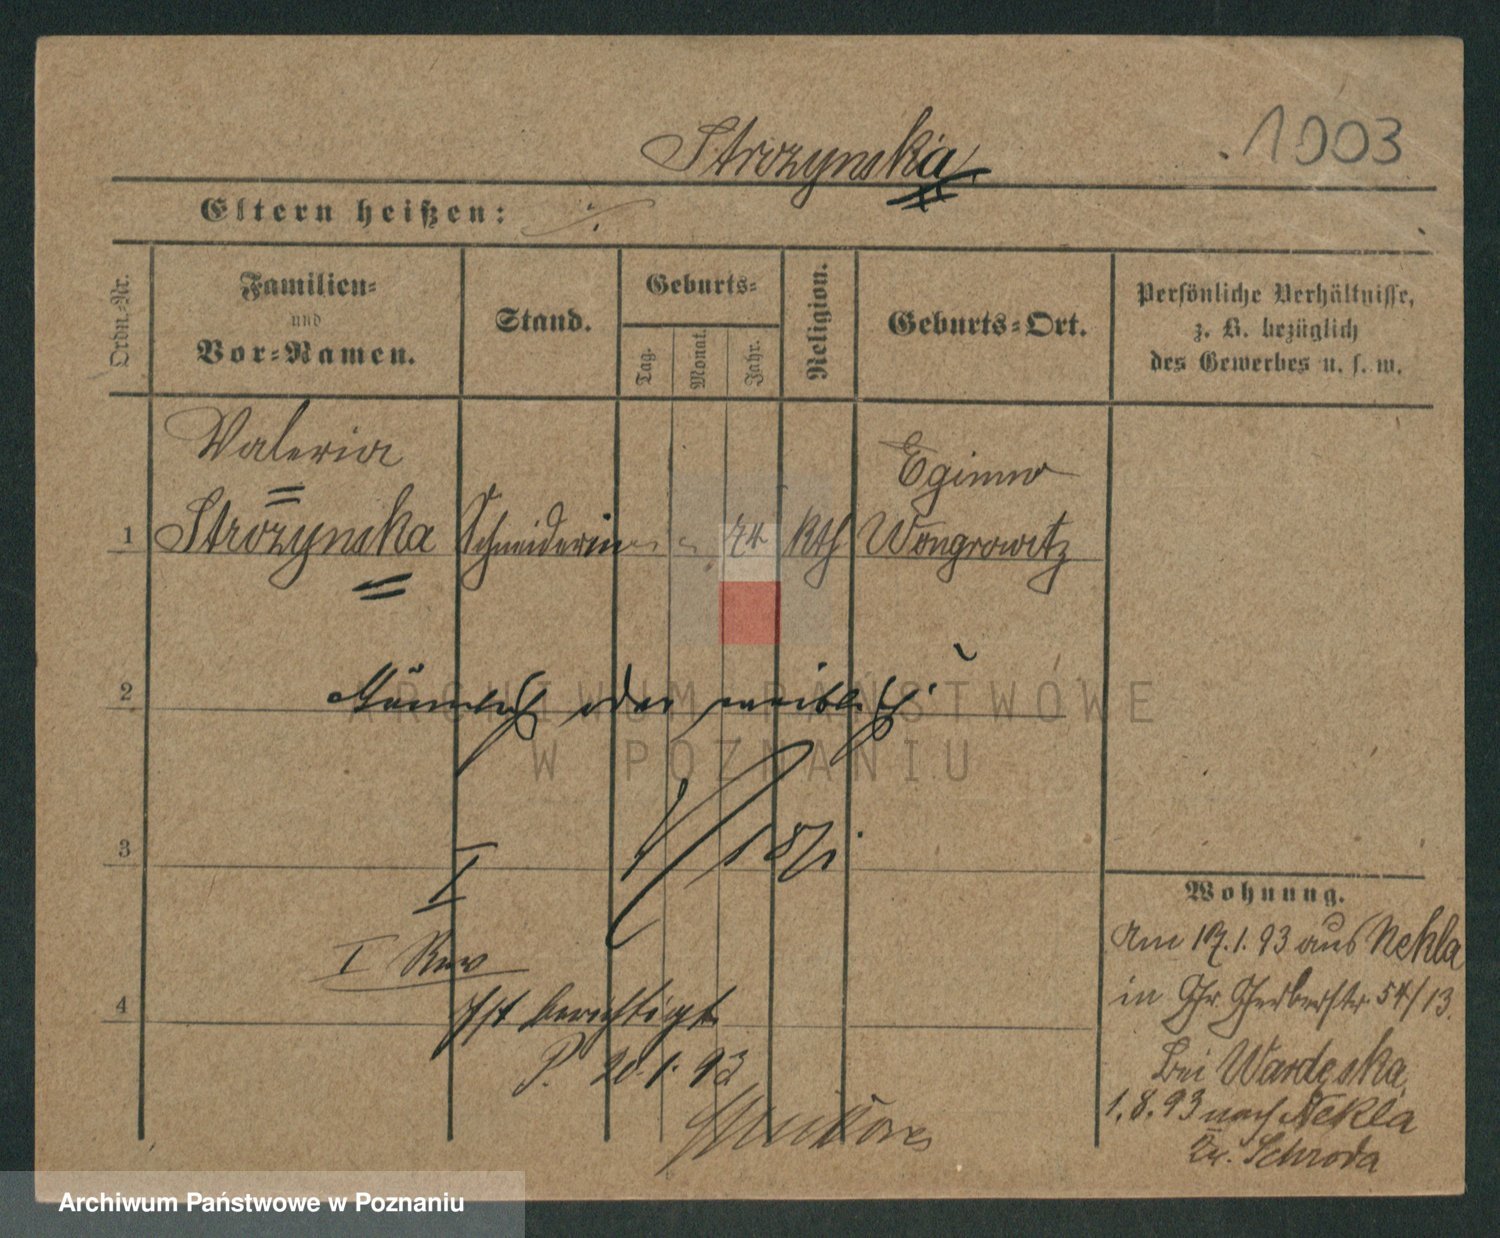 Strozynska
1003
Eltern heißen: ./.
Ordn.-Nr.
Familien-
und
Vor-Namen.
Stand.
Geburts-
Tag.
Monat.
Jahr.
Religion.
Geburts-Ort.
Persönliche Verhältnisse,
z. B. bezüglich
des Gewerbes u. s. w.
Valeria
Eginno
1 Strozynska Schneiderin 74 Kth Wongrowitz
2 Männlich oder weiblich
ARCHIWUM PAŃSTWOWE
W POZNANIU
3
18/1
I
Wohnung.
Am 17.1.93 aus Nekla
in Gr. Gerberstr. 54/13.
bei
1.8.93 nach Nekla
Kr. Schroda
I Rev
4 Ist berichtigt
P. 20.1.93
Archiwum Państwowe w Poznaniu